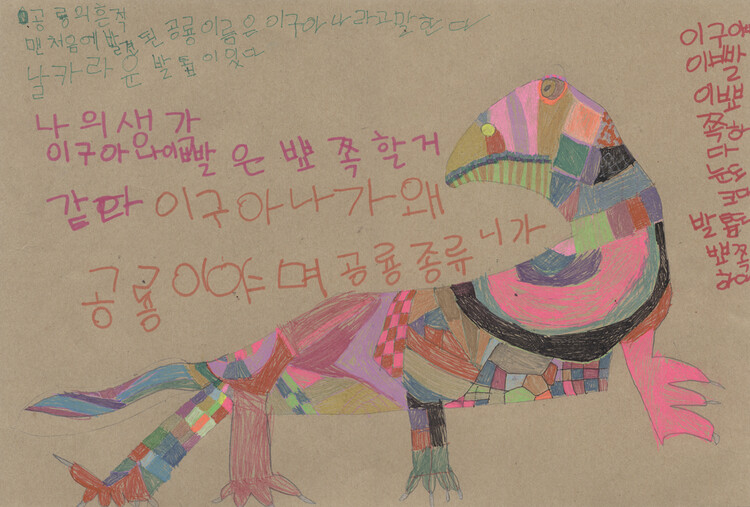 공룡의흔적
맨처음에 발견 된 공룡이름은 이구아나라고말한다
날카라운 발톱이있다
나의생각
이구아와이빨은 뾰쪽할거
같다 이구아나가왜
공룡이야며 공룡종류니가
이구아
이빨
이뾰
쪽하
다
발톱
뾰쪽